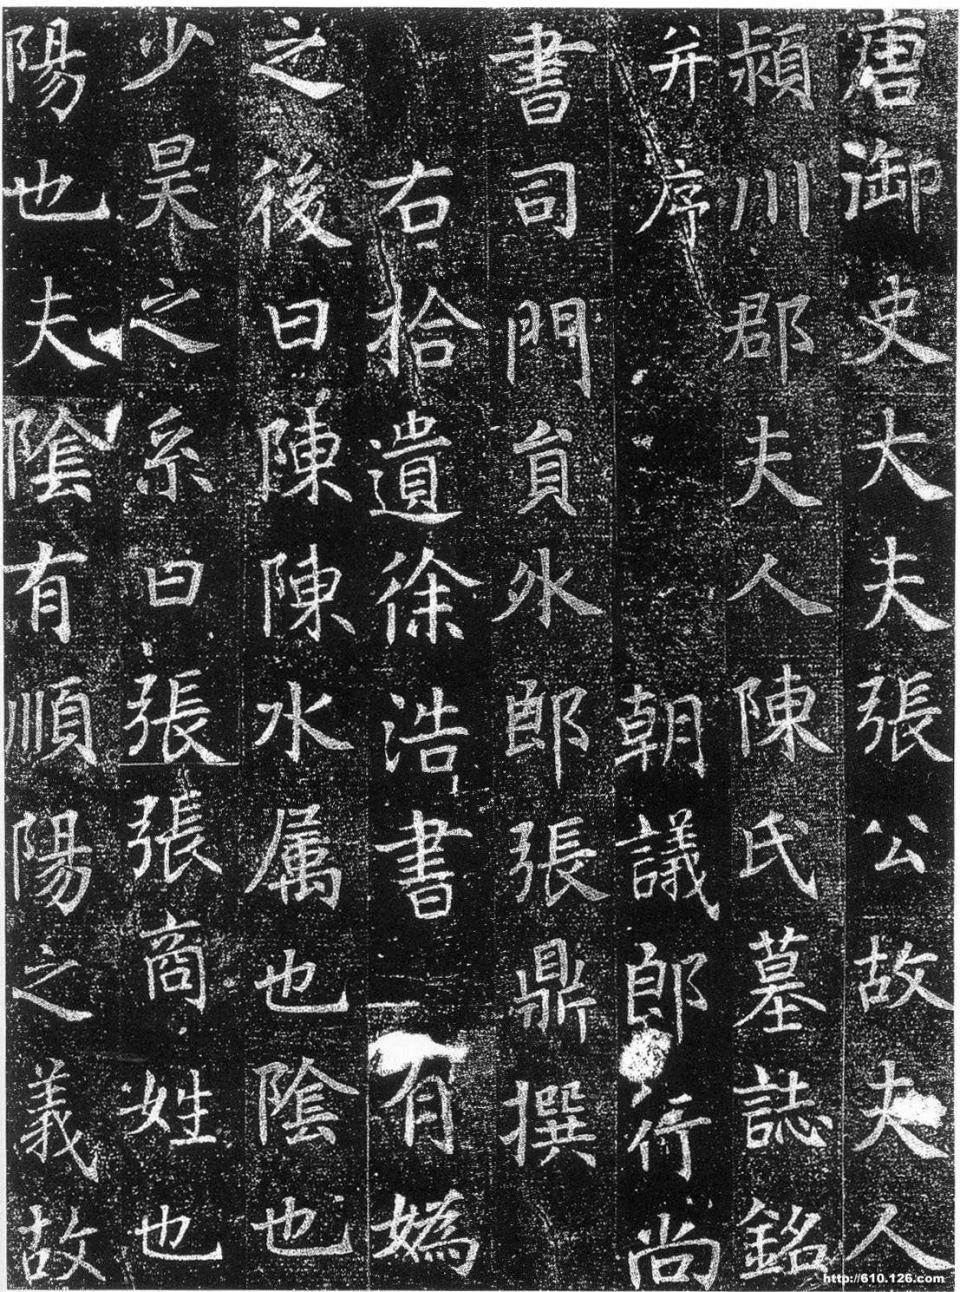 唐御史大夫張公故夫人
潁川郡夫人陳氏墓誌銘
并序 朝議郎行尚
書司門員外郎張鼎撰
右拾遺徐浩書 有嬀
之後曰陳陳水属也陰也
少昊之系曰張張商姓也
陽也夫陰有順陽之義故
http://610.126.com